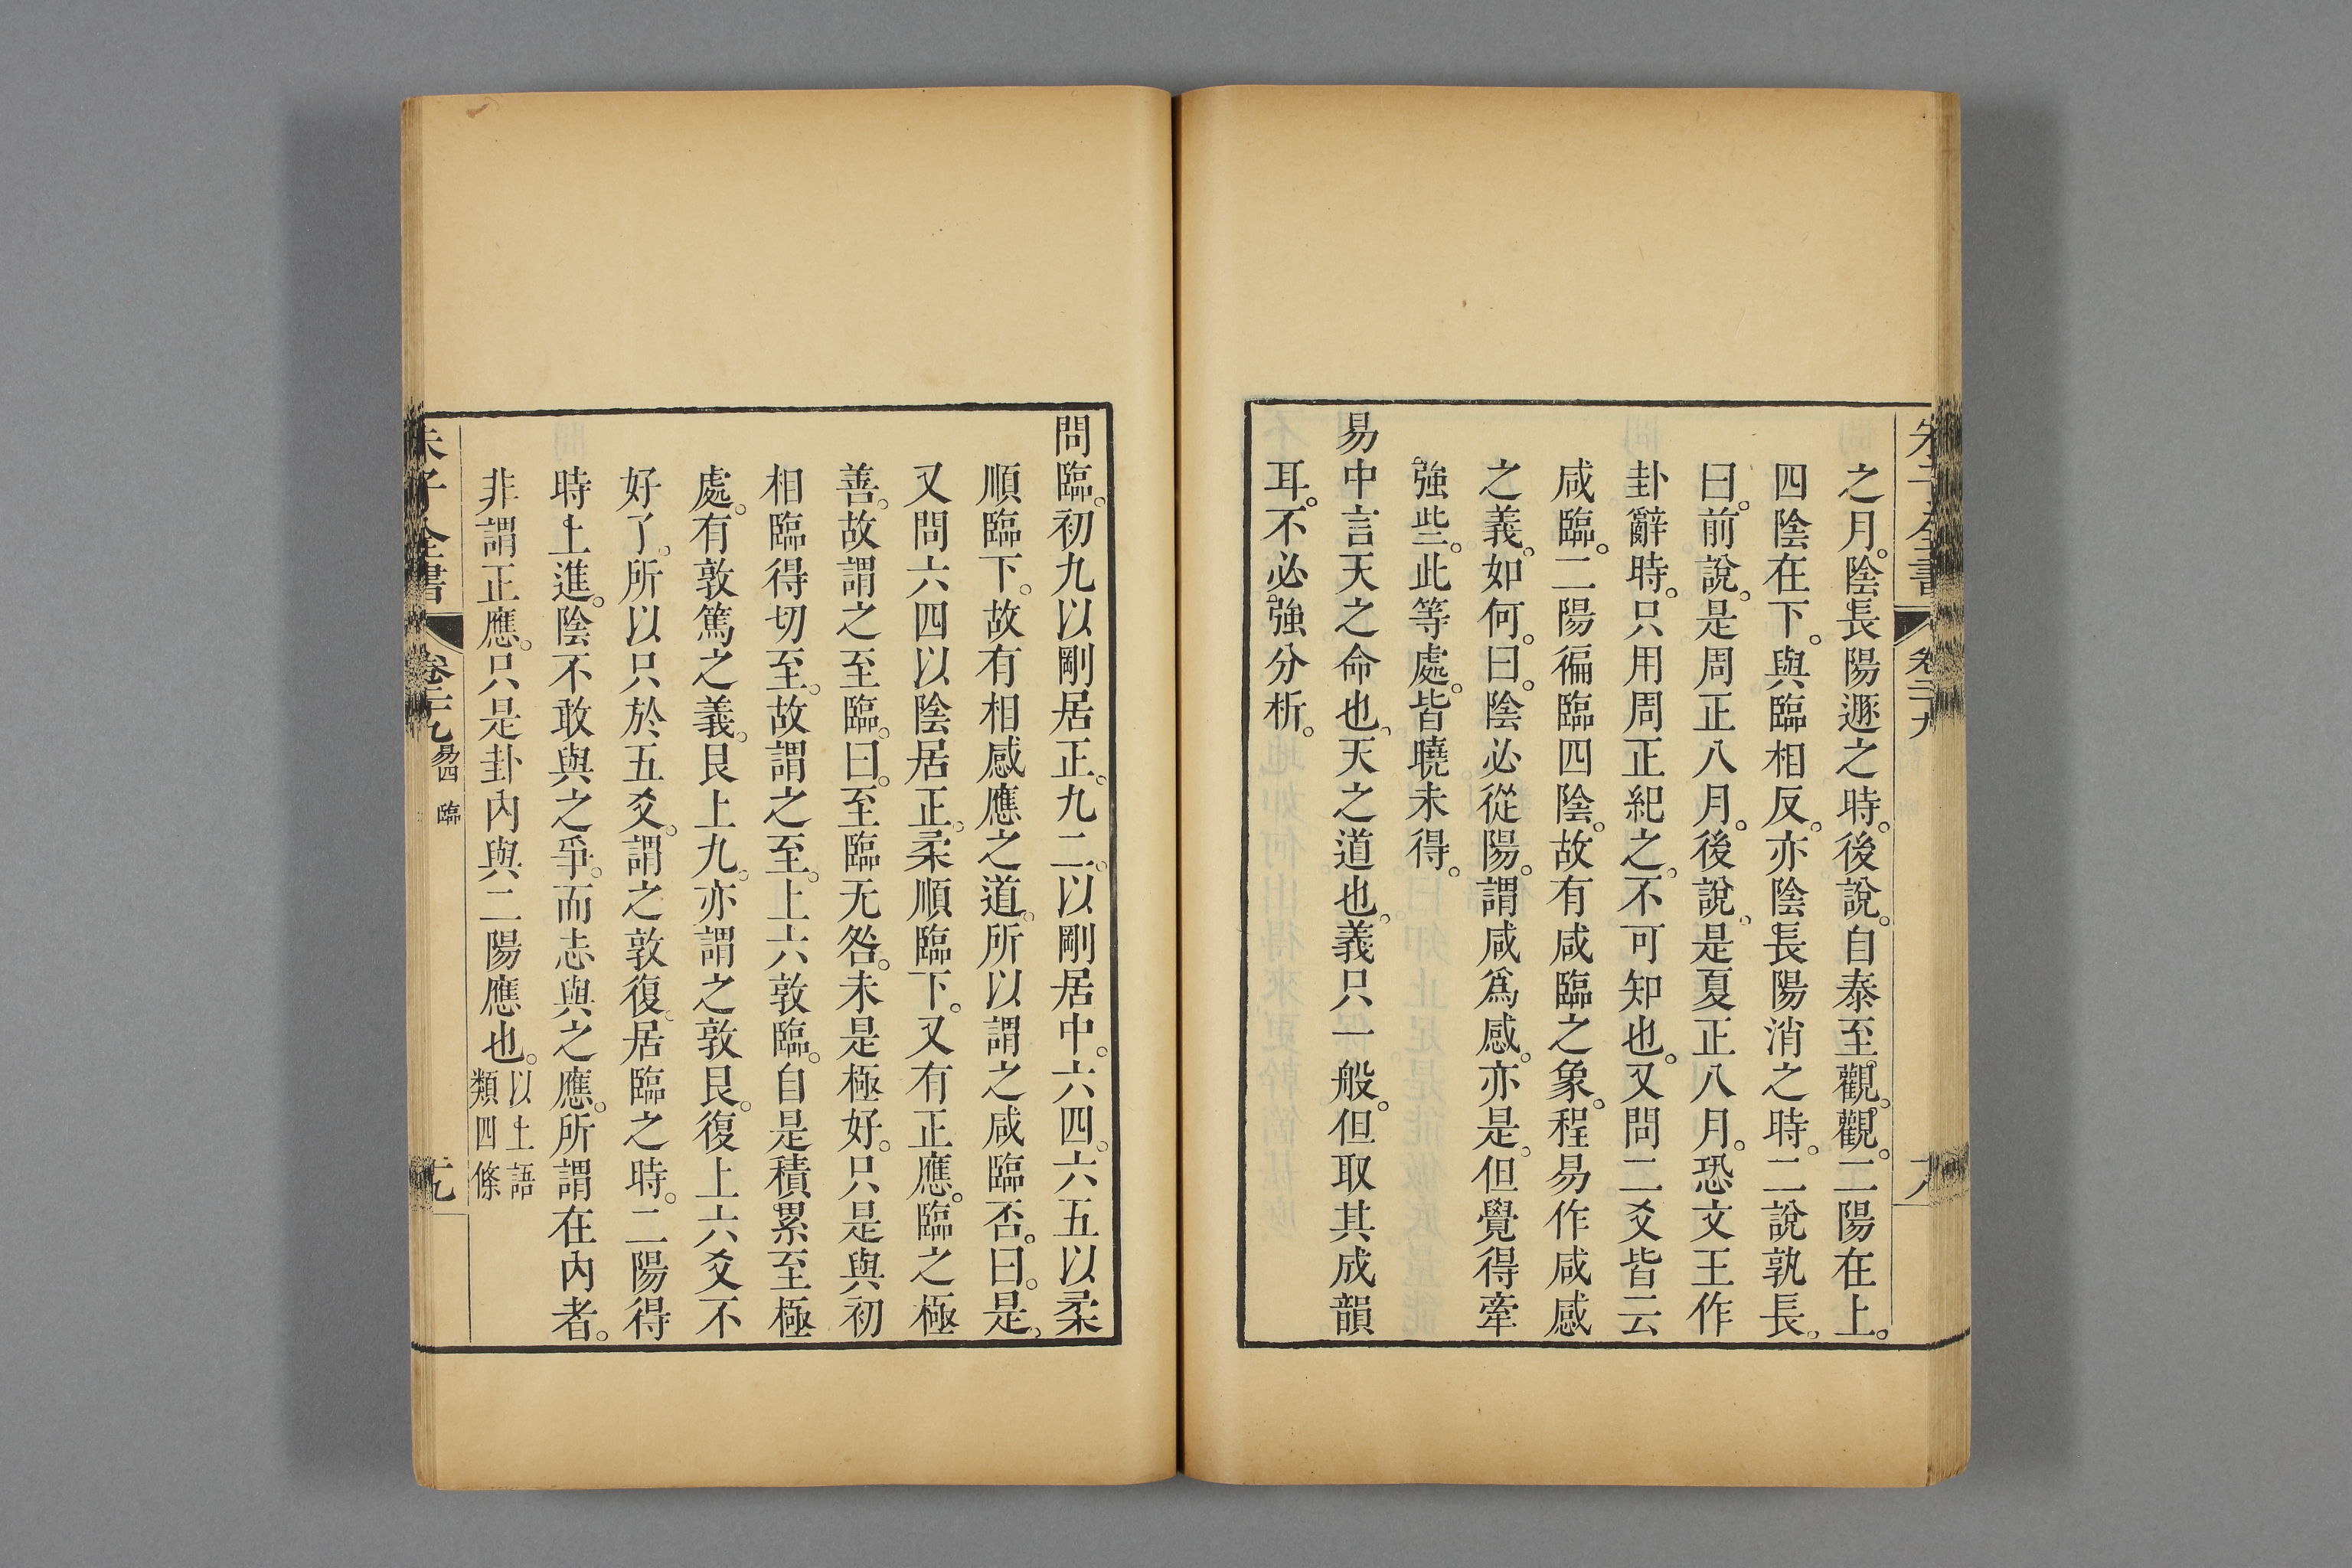 朱子全書 卷二十九 十八
之月。陰長陽遯之時。後說。自泰至觀。觀。二陽在上。
四陰在下。與臨相反。亦陰長陽消之時。二說孰長。
曰。前說。是周正八月。後說。是夏正八月。恐文王作
卦辭時。只用周正紀之。不可知也。又問二爻皆云
咸臨。二陽徧臨四陰。故有咸臨之象。程易作咸感
之義。如何。曰。陰必從陽。謂咸爲感。亦是。但覺得牽
強些。此等處。皆曉未得。
易中言天之命也。天之道也。義只一般。但取其成韻
耳。不必強分析。
問臨。初九以剛居正。九二。以剛居中。六四。六五以柔
順臨下。故有相感應之道。所以謂之咸臨否。曰。是。
又問六四以陰居正。柔順臨下。又有正應。臨之極
善。故謂之至臨。曰。至臨无咎。未是極好。只是與初
相臨得切至。故謂之至。上六敦臨。自是積累至極
處。有敦篤之義。艮上九。亦謂之敦艮。復上六爻不
好了。所以只於五爻。謂之敦復。居臨之時。二陽得
時上進。陰不敢與之爭。而志與之應。所謂在內者。
非謂正應。只是卦內與二陽應也。以上語類四條
朱子全書 卷二十九 易四 臨 十九